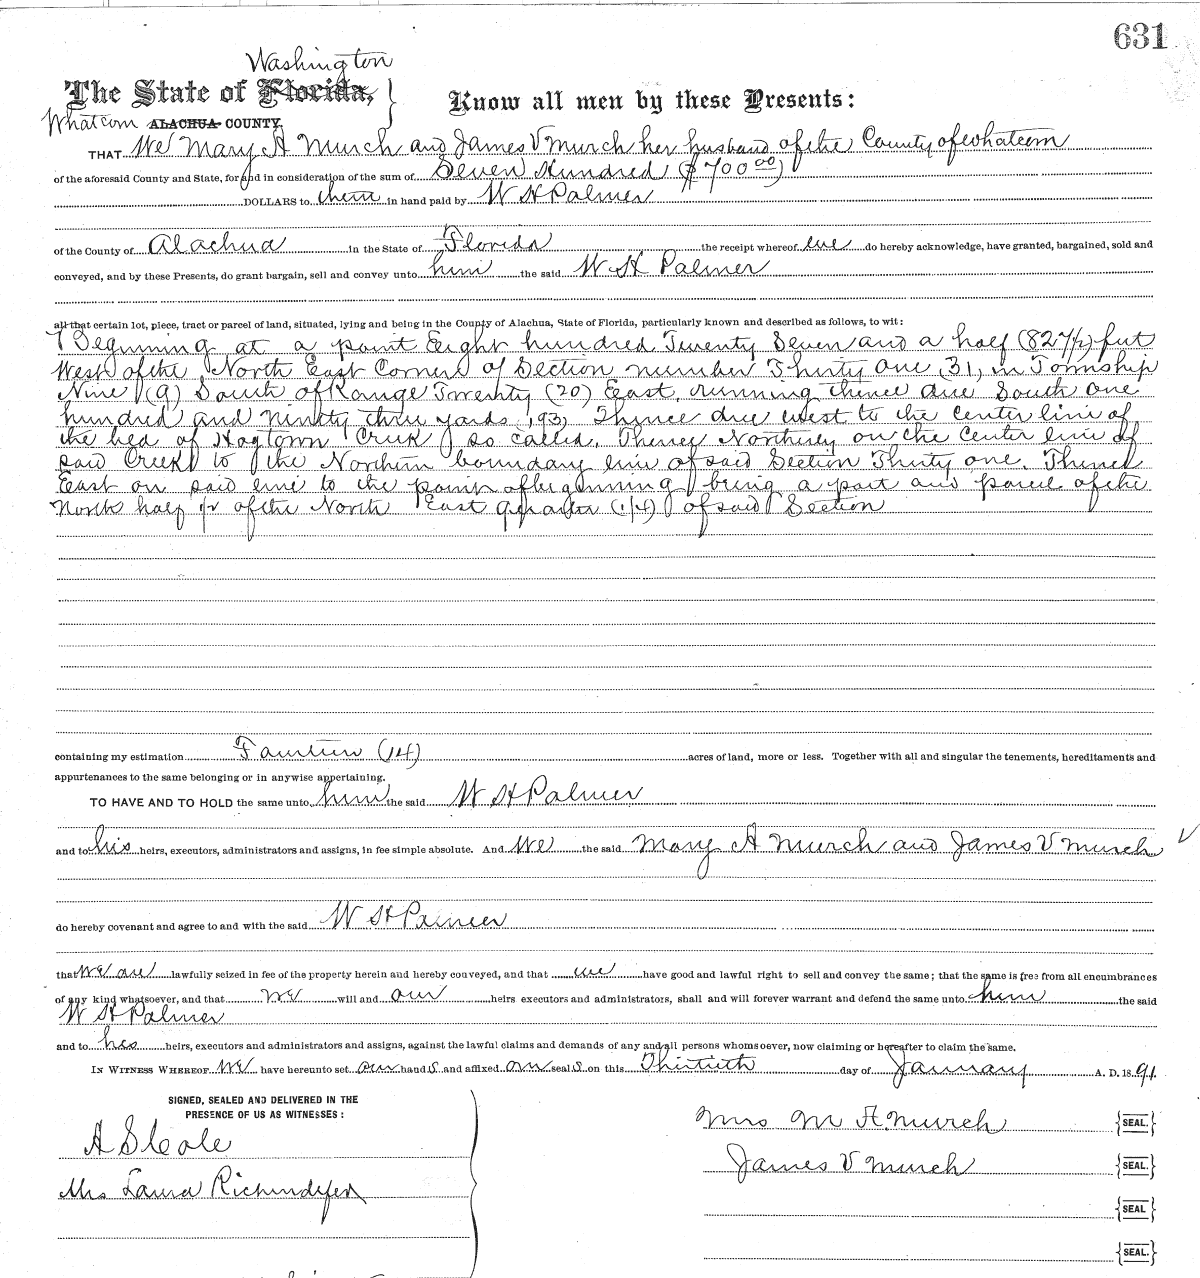 631
Washington
The State of Florida,
Whatcom ALACHUA COUNTY.
Know all men by these Presents:
THAT We Mary A Murch and James V Murch her husband of the County of whatcom
of the aforesaid County and State, for and in consideration of the sum of Seven Hundred ($700 00)
DOLLARS to them in hand paid by W H Palmer
of the County of Alachua in the State of Florida the receipt whereof we do hereby acknowledge, have granted, bargained, sold and
conveyed, and by these Presents, do grant bargain, sell and convey unto him the said W H Palmer
all that certain lot, piece, tract or parcel of land, situated, lying and being in the County of Alachua, State of Florida, particularly known and described as follows, to wit:
Beginning at a point Eight hundred Twenty Seven and a half (827½) feet
West of the North East Corner of Section number Thirty one (31) in Township
Nine (9) South of Range Twenty (20) East, running thence due South one
hundred and ninety three yards 193, Thence due west to the center line of
the bed of Hogtown Creek so called, Thence Northerly on the center line of
said Creek to the Northern boundary line of said Section Thirty one. Thence
East on said line to the point of beginning being a part and parcel of the
North half of the North East quarter (1/4) of said Section
containing my estimation Fourteen (14) acres of land, more or less. Together with all and singular the tenements, hereditaments and
appurtenances to the same belonging or in anywise appertaining.
TO HAVE AND TO HOLD the same unto him the said W H Palmer
and to his heirs, executors, administrators and assigns, in fee simple absolute. And We the said Mary A Murch and James V Murch
do hereby covenant and agree to and with the said W H Palmer
that we are lawfully seized in fee of the property herein and hereby conveyed, and that we have good and lawful right to sell and convey the same; that the same is free from all encumbrances
of any kind whatsoever, and that we will and our heirs executors and administrators, shall and will forever warrant and defend the same unto him the said
W H Palmer
and to his heirs, executors and administrators and assigns, against the lawful claims and demands of any and all persons whomsoever, now claiming or hereafter to claim the same.
IN WITNESS WHEREOF we have hereunto set our hands and affixed our seals on this Thirtieth day of January A. D. 1891.
SIGNED, SEALED AND DELIVERED IN THE
PRESENCE OF US AS WITNESSES:
A S Cole
Mrs Laura Richindifer
Mrs M A Murch SEAL.
James V Murch SEAL.
SEAL
SEAL.